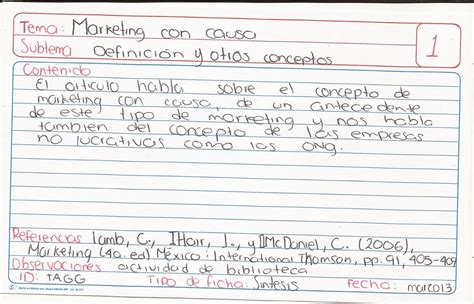 Tema: Marketing con causa
Subtema Definición y otros conceptos
1
Contenido
El articulo habla sobre el concepto de
marketing con causa, de un antecedente
de este tipo de marketing y nos habla
tambien del concepto de las empresas
no lucrativas como las ONG.
Referencias lamb, C., IHair, J., y IIMcDaniel, C. (2006),
Marketing (4a. ed) México: International Thomson, pp. 91, 405-409
Observaciones actividad de biblioteca
ID: TAGG Tipo de ficha: Síntesis Fecha: mar2013